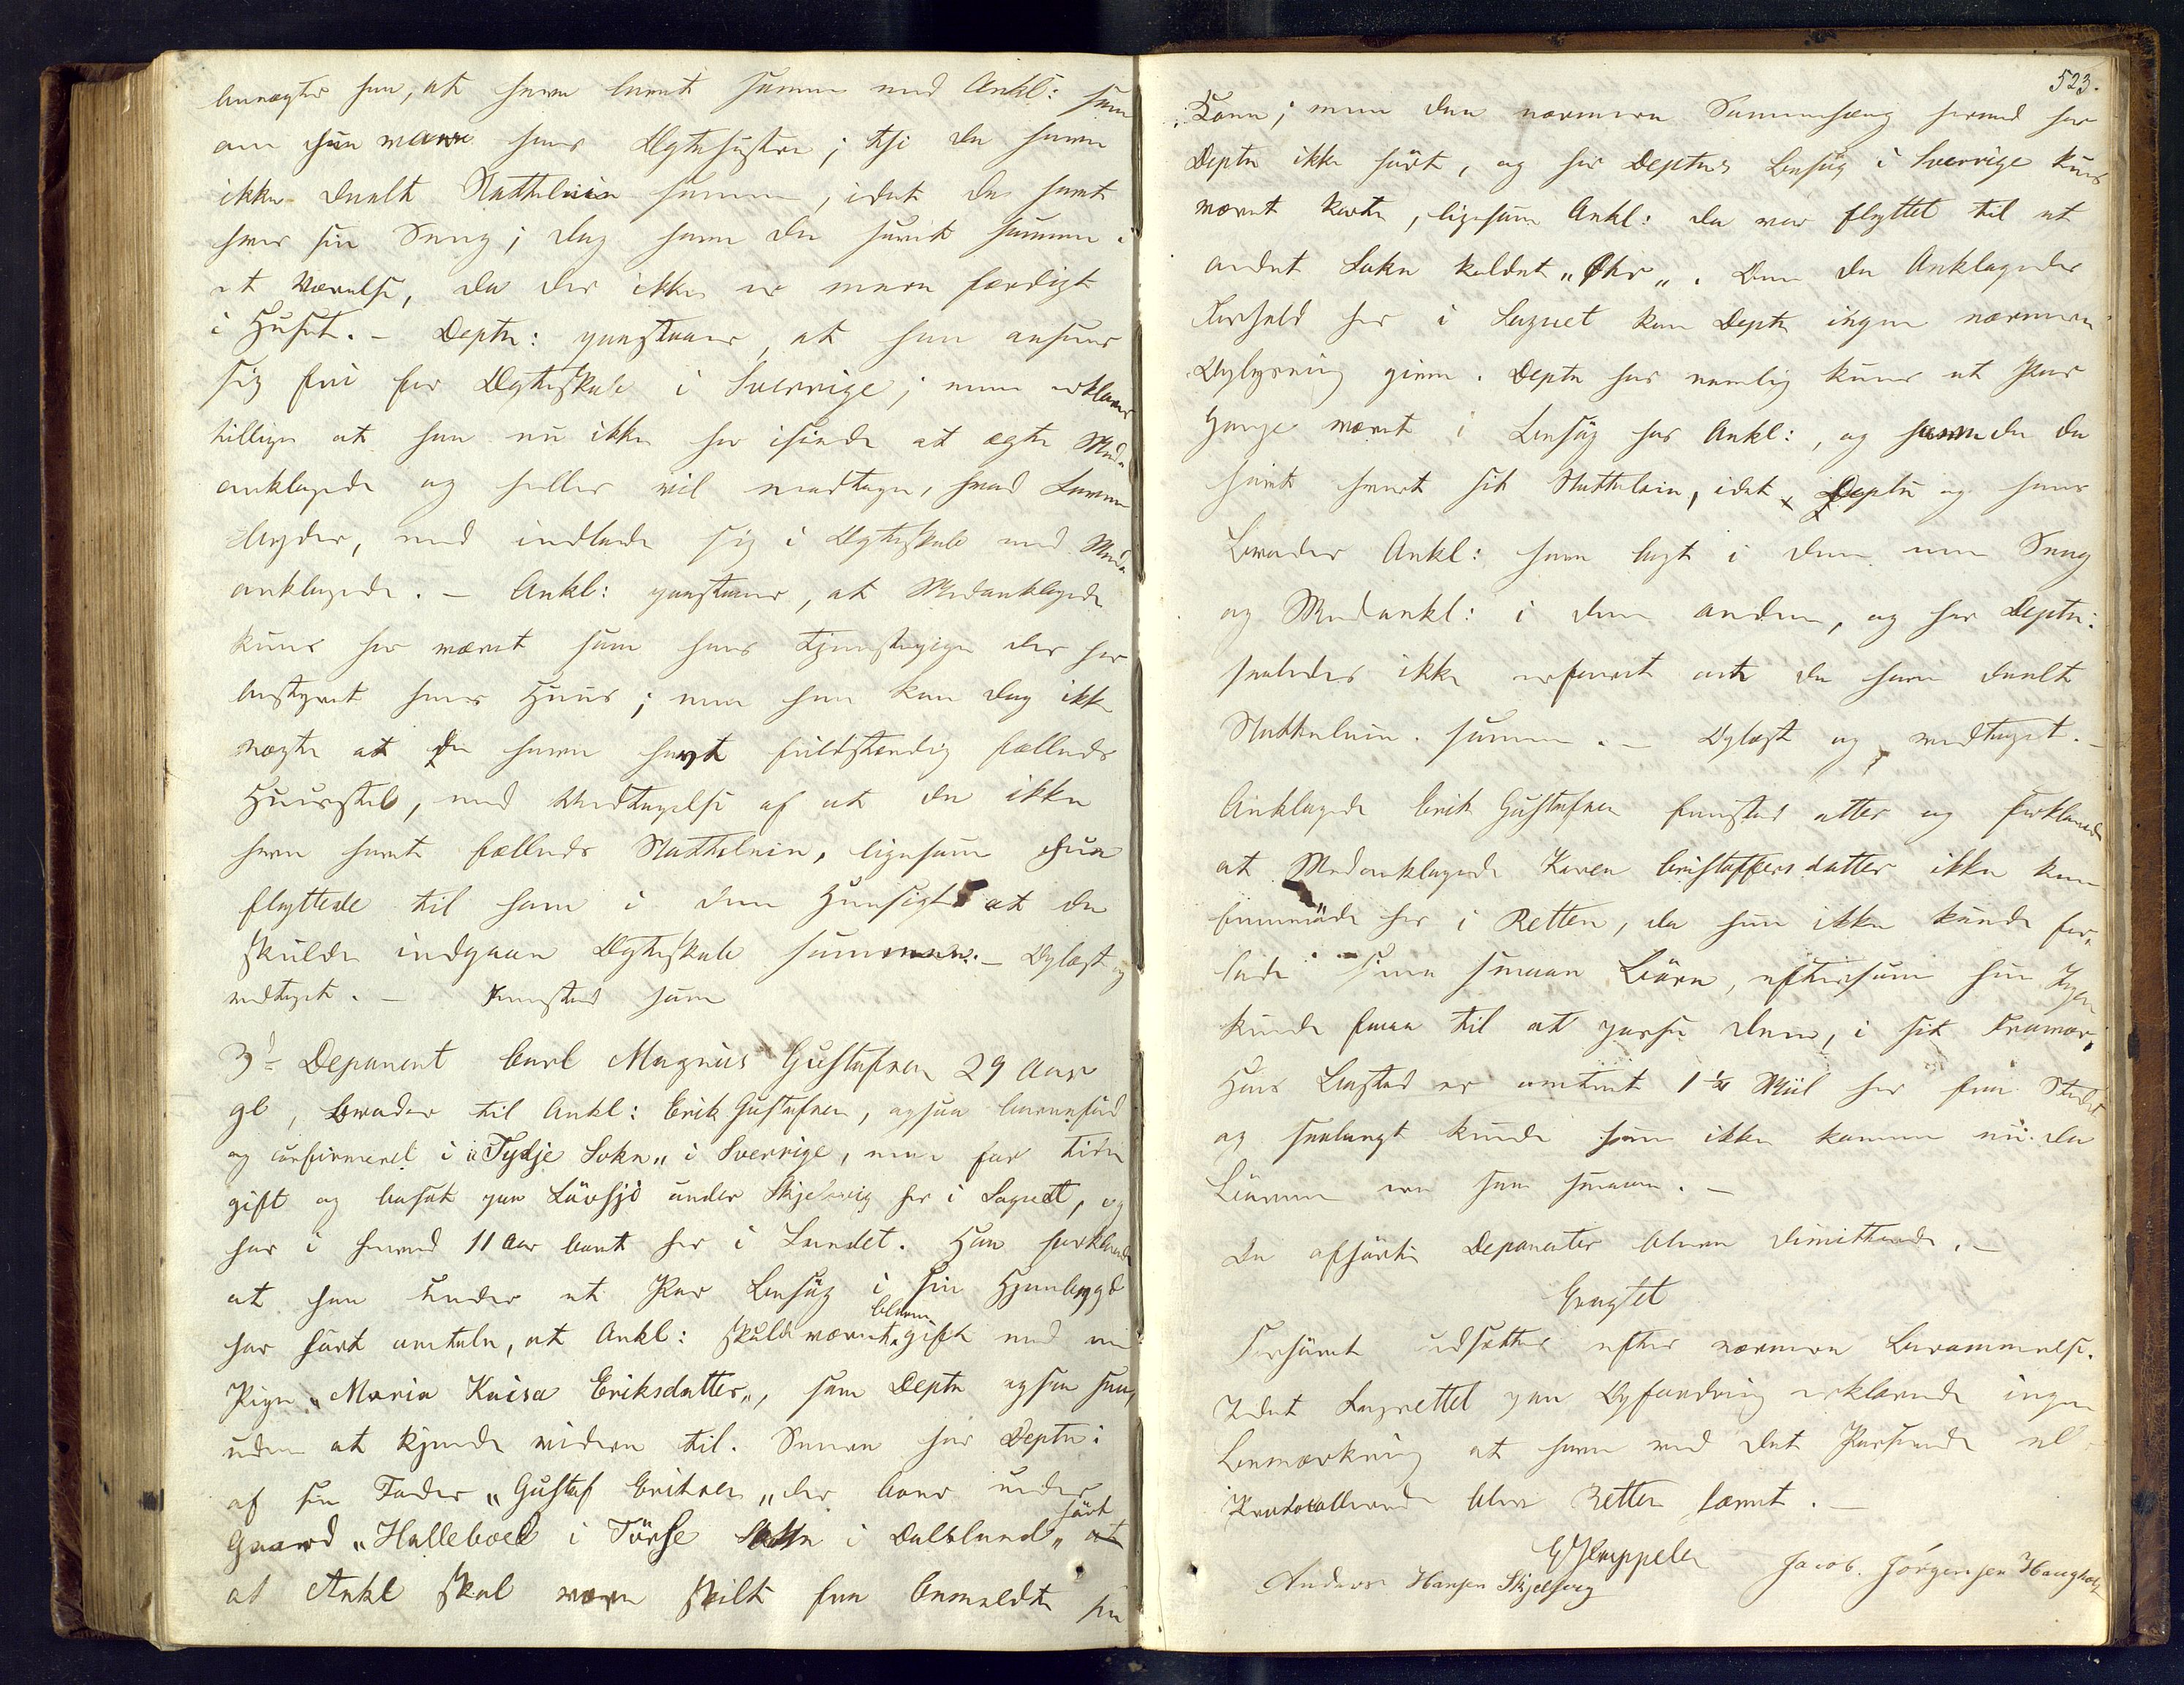 benægter han, at have levet sammen med Ankl: som
om hun være hans Ægtehustru; thi de have
ikke deelt Natteleie sammen, idet de havt
hver sin Seng; dog have de hvilt sammen i
et Værelse, da der ikke er mere færdigt
i Huset. – Deptn: paastaaer, at han ansees
sig fri for Ægteskab i Sverrige; men erklærer
tillige at han nu ikke har isinde at ægte Med-
anklagede og heller vil modtage, hvad Loven
byder, end indlade sig i Ægteskab med Med-
anklagede. – Ankl: paastaaer, at Medanklagede
kuns har været som hans Tjenestepige der har
bestyret hans Huus; men han kan dog ikke
nægte at de have havt fuldstændig fælleds
Huusstel, med Undtagelse af at de ikke
have havt fælleds Natteleie, ligesom hun
flyttede til ham i den Hensigt at de
skulde indgaae Ægteskab sammen. – Oplæst og
vedtaget. – Fremstod som
3die Deponent Carl Magnus Gustafsen 29 Aar
gl, Broder til Ankl: Erik Gustafsen, ogsaa barnefød
og confirmeret i "Tydje Sokn" i Sverrige, men for Tiden
gift og bosat paa Lövsjö under Skjelsvig her i Sognet, og
har i henved 11 Aar boet her i Landet. Han forklarede
at han under et Par Besøg i sin Hjembygd
har hørt omtale, at Ankl: skulde været bleven gift med en
Pige "Maria Kaisa Eriksdatter", som Deptn ogsaa saae
uden at kjende videre til. Senere har Deptn:
af sin Fader "Gustaf Eriksen" der boer under
Gaard "Halleboel i Törse Sokn i Dalsland" hørt
at Ankl skal være skilt fra bemeldte sin
523.
Kone; men den nærmere Sammenhæng hermed har
Deptn ikke hørt, og har Deptns Besøg i Sverrige kuns
været korte, ligesom Ankl: da var flyttet til et
andet Sokn kaldet "Ohr". Om de Anklagedes
Forhold her i Sognet kan Deptn ingen nærmere
Oplysning give. Deptn har nemlig kuns et Par
Gange været i Besøg hos Ankl:, og have de da
havt hvert sit Natteleie, idet Deptn og hans
Broder Ankl: have lagt i den ene Seng
og Medankl: i den anden, og har Deptn:
saaledes ikke erfaret at de have deelt
Natteleie sammen. – Oplæst og vedtaget. –
Anklagede Erik Gustafsen fremstod atter og forklarede
at Medanklagede Karen Christoffersdatter ikke kan
fremmøde her i Retten, da hun ikke kunde for-
lade sine smaae Börn, eftersom hun Ingen
kunde faae til at passe dem, i sit Fravær;
Hans Bosted er omtrent 1 1/4 Miil her fra Stedet
og saalangt kunde hun ikke komme nu da
Börnene ere saa smaae. –
De afhørte Deponenter bleve dimitterede. –
Eragtet
Forhøret udsættes efter nærmere Berammelse.
Idet Lagrettet paa Opfordring erklærede ingen
Bemærkning at have ved det Passerede el
Protocollerede blev Retten hævet. –
Anders Hansen Skjelsvig
Jacob Jörgensen